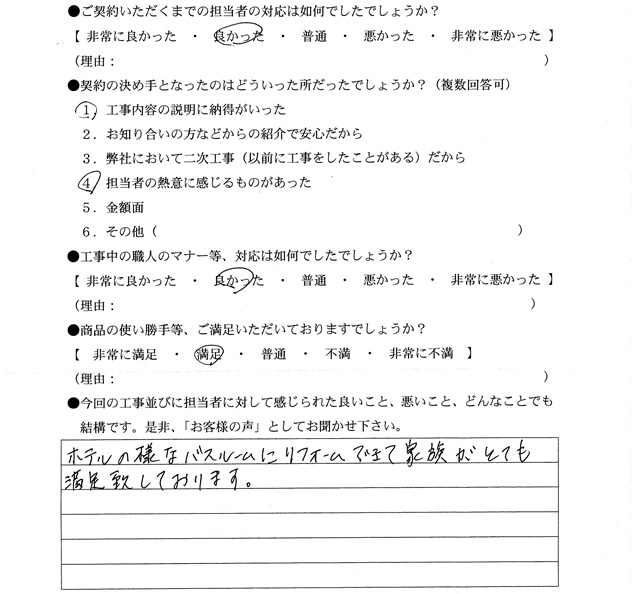 ●ご契約いただくまでの担当者の対応は如何でしたでしょうか？
【 非常に良かった ・ 良かった ・ 普通 ・ 悪かった ・ 非常に悪かった 】
（理由： ）
●契約の決め手となったのはどういった所だったでしょうか？（複数回答可）
1．工事内容の説明に納得がいった
2．お知り合いの方などからの紹介で安心だから
3．弊社において二次工事（以前に工事をしたことがある）だから
4．担当者の熱意に感じるものがあった
5．金額面
6．その他（ ）
●工事中の職人のマナー等、対応は如何でしたでしょうか？
【 非常に良かった ・ 良かった ・ 普通 ・ 悪かった ・ 非常に悪かった 】
（理由： ）
●商品の使い勝手等、ご満足いただいておりますでしょうか？
【 非常に満足 ・ 満足 ・ 普通 ・ 不満 ・ 非常に不満 】
（理由： ）
●今回の工事並びに担当者に対して感じられた良いこと、悪いこと、どんなことでも
結構です。是非、「お客様の声」としてお聞かせ下さい。
ホテルの様なバスルームにリフォームできて家族がとても
満足致しております。